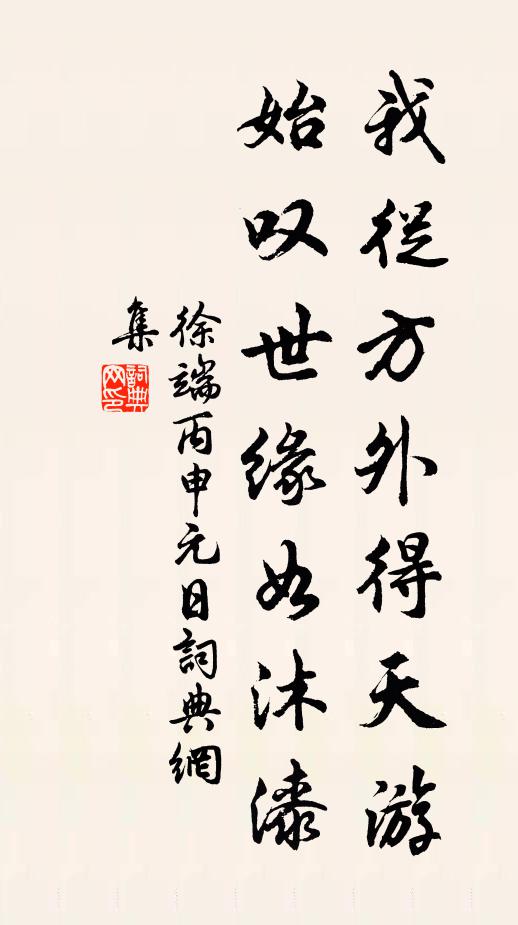 我從方外得天游
始叹世緣如沐漆
徐端丙申元日詞典網
集
詞典
网印